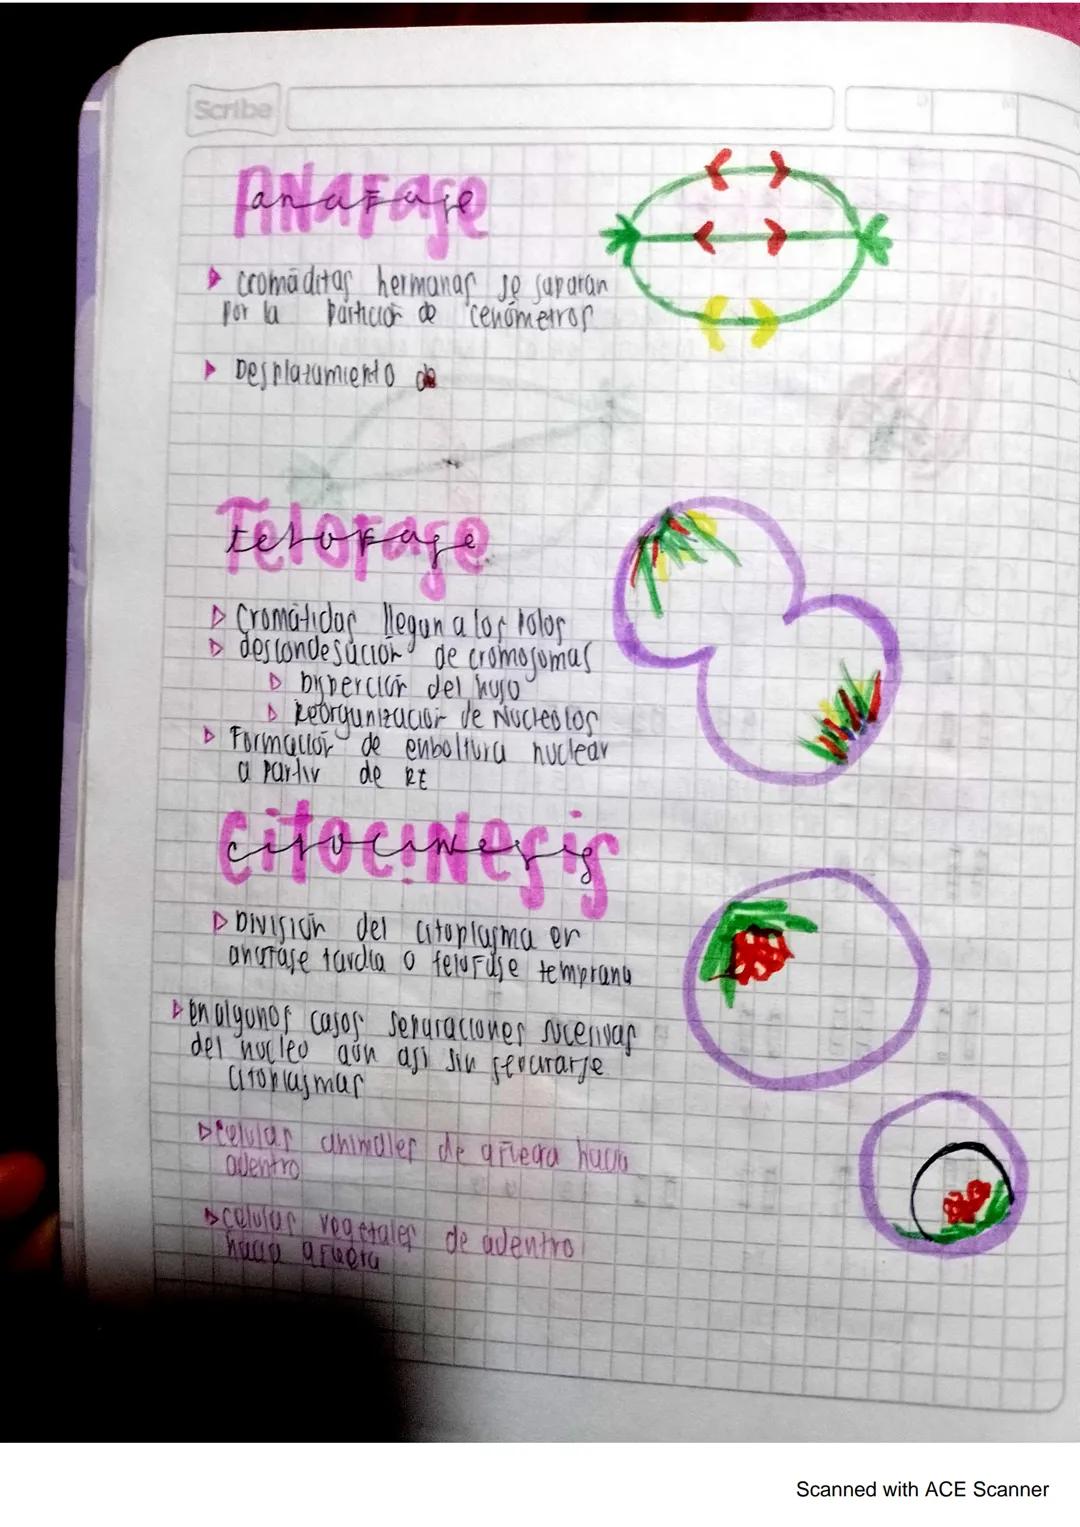 Scribe
Anafase
anafase
cromáditas hermanas se saparan
por la partición de cenómetros
Desplazamiento de
Telofase
telofase
Cromátidas llegan a los polos
descondesación de cromosomas
disperción del huso
Reorganización de Nucleolos
Formación de enboltura nuclear
a partir de RE
Citocinesis
citocinesis
División del citoplasma en
anafase tardía o telofase temprana
en algunos casos separaciones sucesivas
del nucleo aún asi sin separarse
citoplasmas
celulas animales de afuera hacia
adentro
celulas vegetales de adentro
hacia afuera
Scanned with ACE Scanner